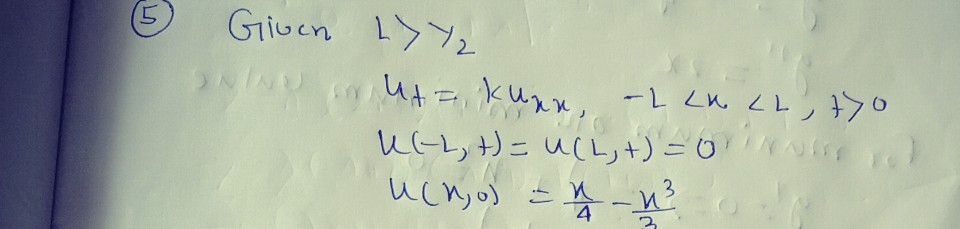 5 Given L > 1/2
u_t = k u_xx, -L < x < L, t > 0
u(-L, t) = u(L, t) = 0
u(x, 0) = x/4 - x³/3